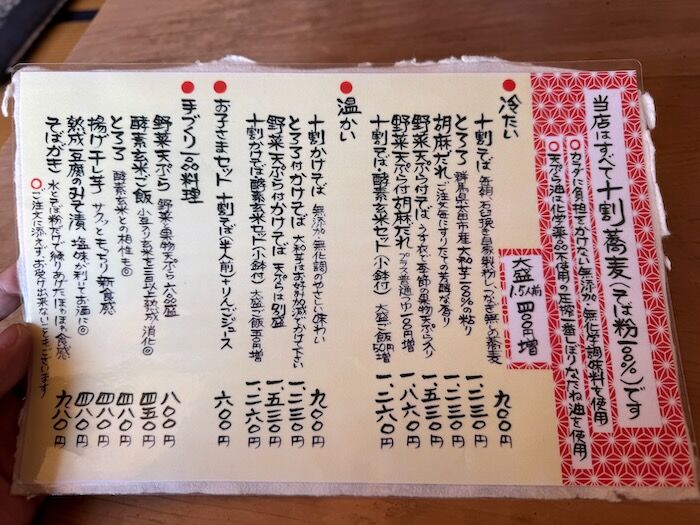 当店はすべて十割蕎麦(そば粉100%)です
○カラダに負担をかけない無添加・無化学調味料を使用
○天ぷら油は化学薬品不使用の圧搾一番しぼりなたね油を使用
大盛 1.5人前 四〇〇円増
冷たい
十割そば 毎朝、石臼挽き自家製粉しつなぎ無しの蕎麦 九〇〇円
とろろ 群馬県太田市産大和芋100%の粘り 一、二三〇円
胡麻だれ ご注文毎にすりたての芳醇な香り 一、二三〇円
野菜天ぷら付そば うす衣で季節の果物天ぷら入り 一、五三〇円
野菜天ぷら付胡麻だれ プラス普通つゆ一〇〇円増 一、八六〇円
十割そば・酵素玄米セット(小鉢付) 大盛ご飯50円増 一、二六〇円
温かい
十割かけそば 無添加・無化調のやさしい味わい 九〇〇円
とろろ付かけそば 大和芋はお好み加減でかけて下さい 一、二三〇円
野菜天ぷら付かけそば 天ぷらは別盛 一、五三〇円
十割かけそば・酵素玄米セット(小鉢付) 大盛ご飯50円増 一、二六〇円
お子さまセット 十割そば(半人前)+りんごジュース 六〇〇円
手づくり一品料理
野菜天ぷら 野菜・果物天ぷら 六〜八品盛 八〇〇円
酵素玄米ご飯 小豆入り玄米を三日以上熟成 消化◎ 四五〇円
とろろ 酵素玄米との相性◎ 四八〇円
揚げ干し芋 サクッともっちり新食感 四八〇円
熟成豆腐のみそ漬 塩味が利いてお酒に◎ 四八〇円
そばがき 水とそば粉だけで練りあげてほわほわ食感 九八〇円
○ご注文に添えず、お受け出来ないときございます